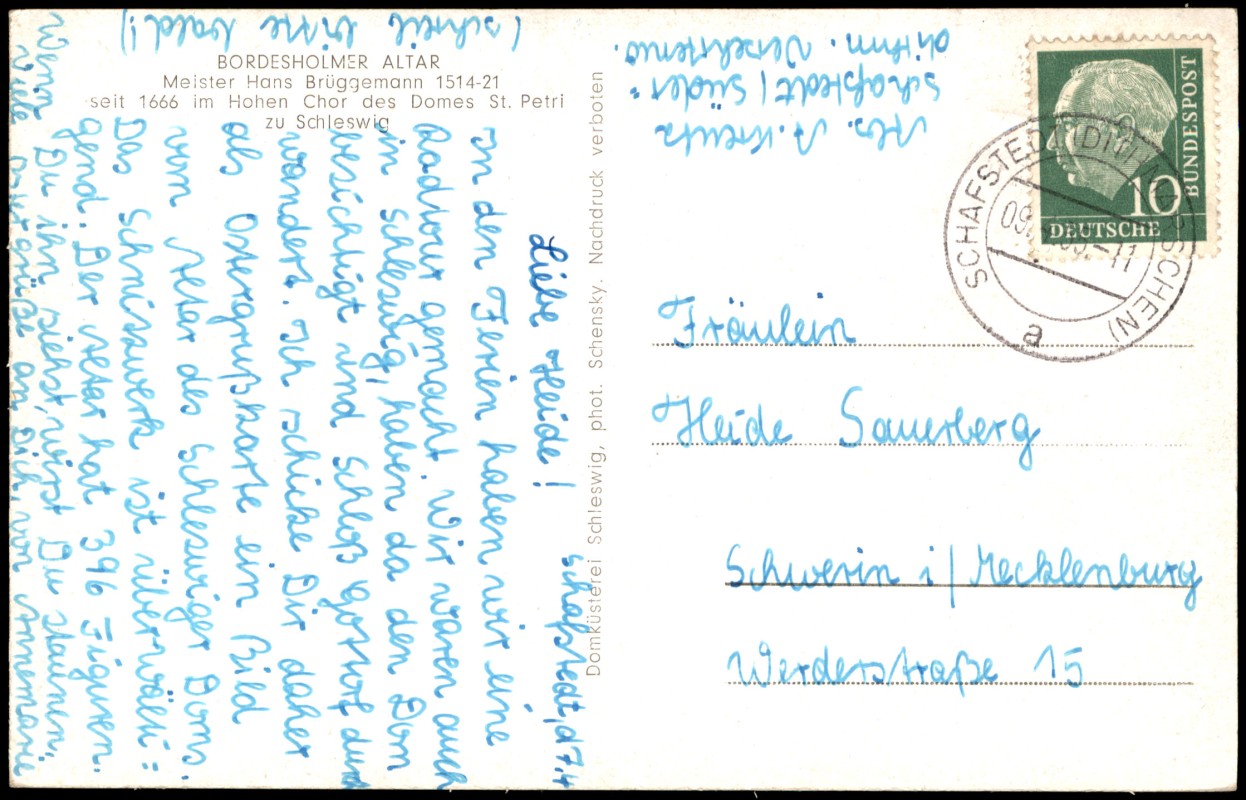 BORDESHOLMER ALTAR
Meister Hans Brüggemann 1514-21
seit 1666 im Hohen Chor des Domes St. Petri
zu Schleswig
Schafstedt, d 7.4
Liebe Heide!
In den Ferien haben wir eine
Radtour gemacht. Wir waren auch
in Schleswig, haben da den Dom
besichtigt und Schloß Gottorf durch
wandert. Ich schicke Dir daher
als Ostergrußkarte ein Bild
vom Altar des Schleswiger Doms.
Das Schnitzwerk ist überwälti=
gend. Der Altar hat 396 Figuren.
Wenn Du ihn siehst, wirst Du staunen.
Viele Ostergrüße an Dich, von Annemarie
(schreib bitte bald!)
Domküsterei Schleswig, phot. Schensky. Nachdruck verboten
Abs. A. Kreutz
Schafstedt / Süder=
dithm.
DEUTSCHE
BUNDESPOST
10
SCHAFSTEDT (DITHMARSCHEN)
a
Fräulein
Heide Sauerberg
Schwerin i/Mecklenburg
Werderstraße 15